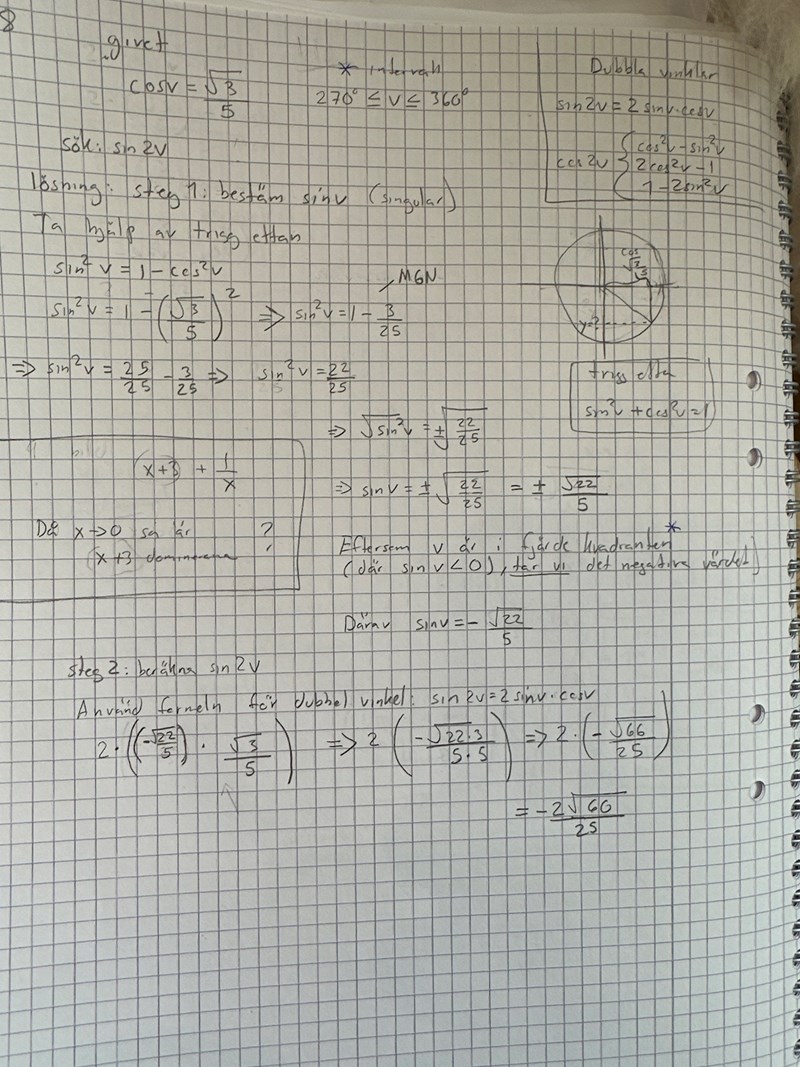 8
givet
cosv = √3/5
* intervall
270° ≤ v ≤ 360°
Dubbla vinklar
sin2v = 2 sinv·cosv
cos2v { cos²v - sin²v
2cos²v - 1
1 - 2sin²v
sök: sin 2v
lösning: steg 1: bestäm sinv (singular)
Ta hjälp av trigg ettan
sin²v = 1 - cos²v
sin²v = 1 - (√3/5)² ⇒ sin²v = 1 - 3/25
MGN
cos
y=?
⇒ sin²v = 25/25 - 3/25 ⇒ sin²v = 22/25
trigg ettan
sin²v + cos²v = 1
⇒ √sin²v = ±√22/25
⇒ sinv = ±√22/25 = ± √22/5
(x+3) + 1/x
Då x→0 så är ?
x+3
Eftersom v är i fjärde kvadranten*
(där sin v<0), tar vi det negativa värdet)
Därav sinv = - √22/5
steg 2: beräkna sin2v
Använd formeln för dubbel vinkel: sin2v = 2sinv·cosv
2·((-√22/5) · √3/5) ⇒ 2 (-√22·3/5·5) ⇒ 2·(-√66/25)
= -2√66/25